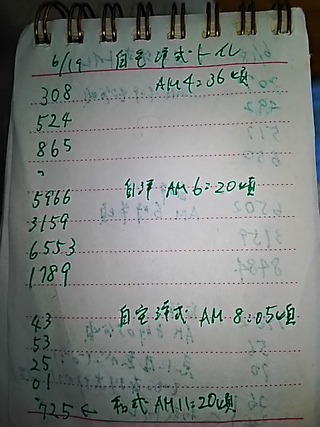 6/19 自宅洋式トイレ
308 AM4:36頃
524
865
〃
5966 自洋 AM 6:20頃
3159
6553
1789
43 自宅洋式 AM 8:05頃
53
25
01
725← 和式 AM11:20頃